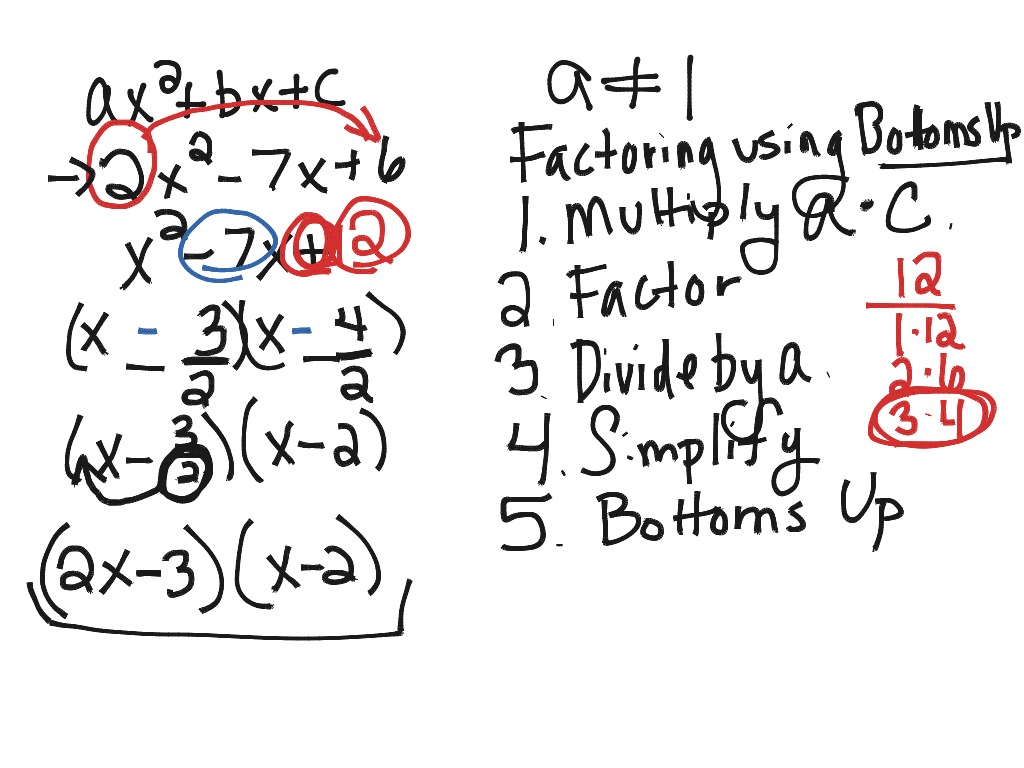 ax² + bx + c
→ 2x² - 7x + 6
x² - 7x + 12
(x - 3/2)(x - 4/2)
(x - 3/2)(x - 2)
(2x - 3)(x - 2)
a ≠ 1
Factoring using Bottoms Up
1. Multiply a · c.
2. Factor
3. Divide by a.
4. Simplify
5. Bottoms Up
12
1 · 12
2 · 6
3 · 4